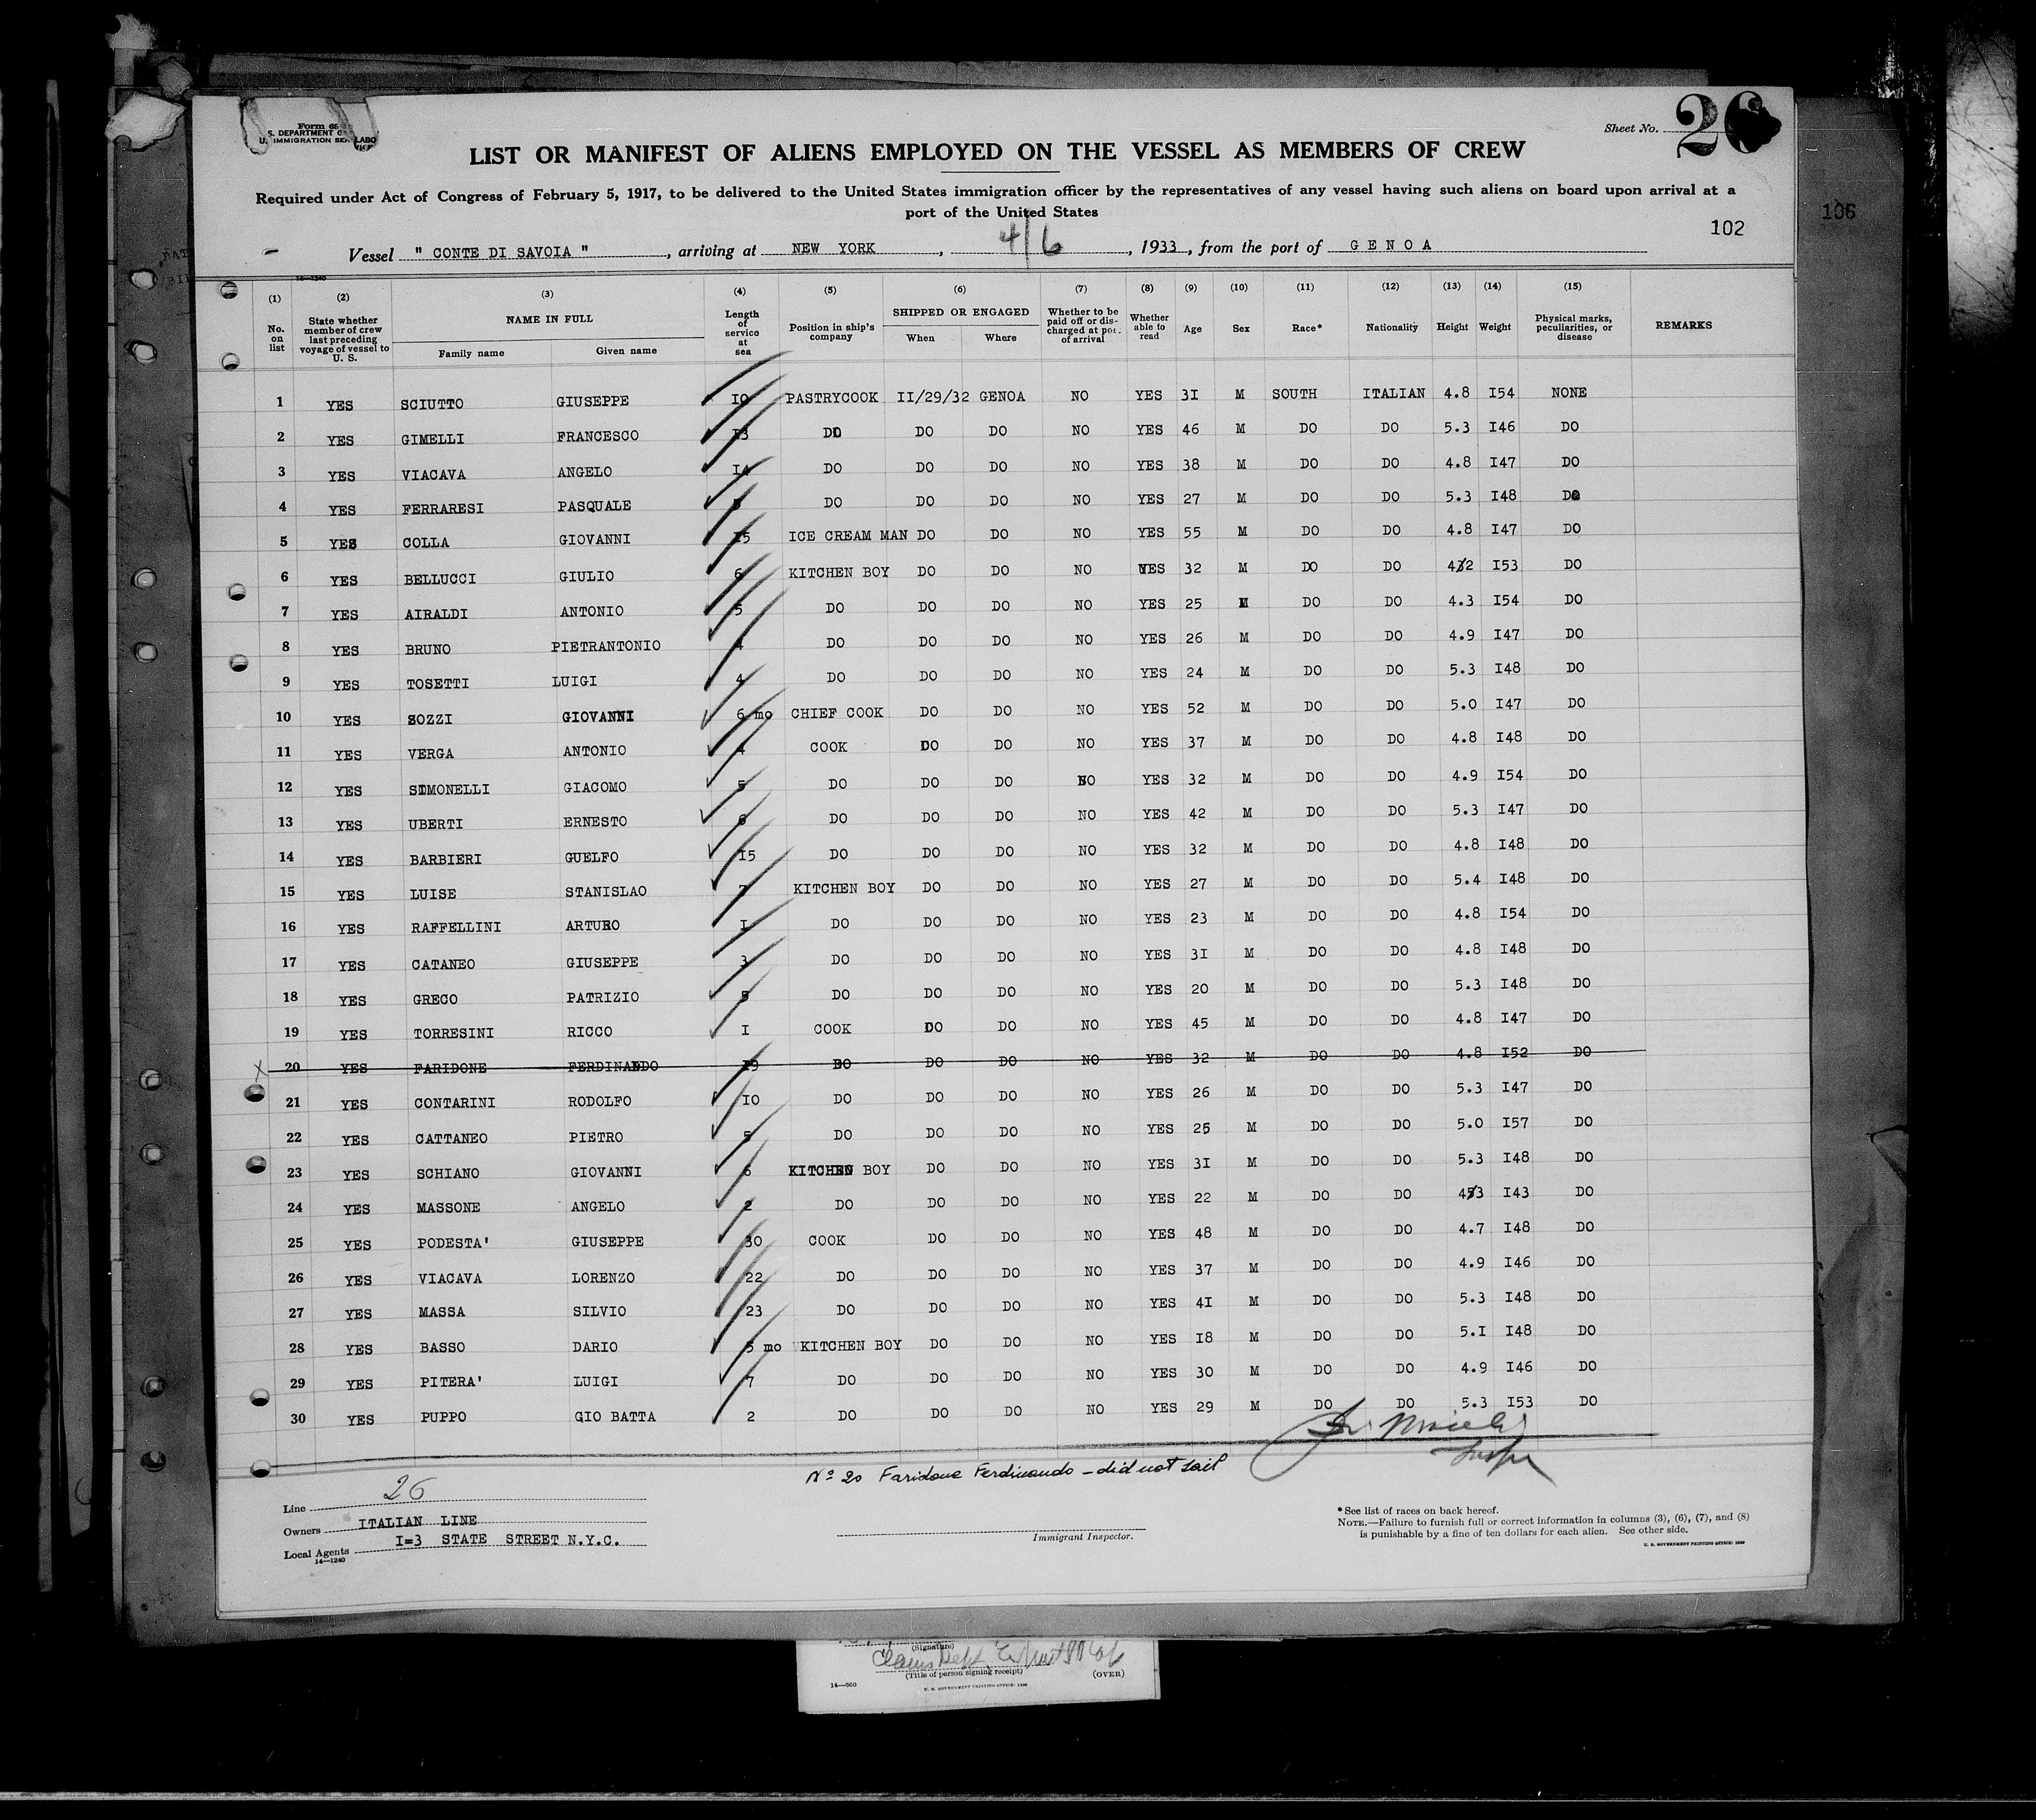 Form 68
S. DEPARTMENT OF LABO
U. IMMIGRATION SER
Sheet No. 26
LIST OR MANIFEST OF ALIENS EMPLOYED ON THE VESSEL AS MEMBERS OF CREW
Required under Act of Congress of February 5, 1917, to be delivered to the United States immigration officer by the representatives of any vessel having such aliens on board upon arrival at a
port of the United States
102
106
Vessel " CONTE DI SAVOIA ", arriving at NEW YORK, 4/6, 1933, from the port of GENOA
14—1240
(1) (2) (3) (4) (5) (6) (7) (8) (9) (10) (11) (12) (13) (14) (15)
No. on list State whether member of crew last preceding voyage of vessel to U. S. NAME IN FULL Family name Given name Length of service at sea Position in ship's company SHIPPED OR ENGAGED When Where Whether to be paid off or discharged at port of arrival Whether able to read Age Sex Race* Nationality Height Weight Physical marks, peculiarities, or disease REMARKS
1 YES SCIUTTO GIUSEPPE IO PASTRYCOOK II/29/32 GENOA NO YES 3I M SOUTH ITALIAN 4.8 I54 NONE
2 YES GIMELLI FRANCESCO I3 DO DO DO NO YES 46 M DO DO 5.3 I46 DO
3 YES VIACAVA ANGELO I4 DO DO DO NO YES 38 M DO DO 4.8 I47 DO
4 YES FERRARESI PASQUALE DO DO DO NO YES 27 M DO DO 5.3 I48 DO
5 YES COLLA GIOVANNI I5 ICE CREAM MAN DO DO NO YES 55 M DO DO 4.8 I47 DO
6 YES BELLUCCI GIULIO 6 KITCHEN BOY DO DO NO YES 32 M DO DO I53 DO
7 YES AIRALDI ANTONIO 5 DO DO DO NO YES 25 M DO DO 4.3 I54 DO
8 YES BRUNO PIETRANTONIO 4 DO DO DO NO YES 26 M DO DO 4.9 I47 DO
9 YES TOSETTI LUIGI 4 DO DO DO NO YES 24 M DO DO 5.3 I48 DO
10 YES SOZZI GIOVANNI 6 mo CHIEF COOK DO DO NO YES 52 M DO DO 5.0 I47 DO
11 YES VERGA ANTONIO 4 COOK DO DO NO YES 37 M DO DO 4.8 I48 DO
12 YES SIMONELLI GIACOMO 5 DO DO DO NO YES 32 M DO DO 4.9 I54 DO
13 YES UBERTI ERNESTO 6 DO DO DO NO YES 42 M DO DO 5.3 I47 DO
14 YES BARBIERI GUELFO I5 DO DO DO NO YES 32 M DO DO 4.8 I48 DO
15 YES LUISE STANISLAO 7 KITCHEN BOY DO DO NO YES 27 M DO DO 5.4 I48 DO
16 YES RAFFELLINI ARTURO I DO DO DO NO YES 23 M DO DO 4.8 I54 DO
17 YES CATANEO GIUSEPPE 3 DO DO DO NO YES 3I M DO DO 4.8 I48 DO
18 YES GRECO PATRIZIO 5 DO DO DO NO YES 20 M DO DO 5.3 I48 DO
19 YES TORRESINI RICCO I COOK DO DO NO YES 45 M DO DO 4.8 I47 DO
X 20 YES FARIDONE FERDINANDO I9 DO DO DO NO YES 32 M DO DO 4.8 I52 DO
21 YES CONTARINI RODOLFO IO DO DO DO NO YES 26 M DO DO 5.3 I47 DO
22 YES CATTANEO PIETRO 5 DO DO DO NO YES 25 M DO DO 5.0 I57 DO
23 YES SCHIANO GIOVANNI 6 KITCHEN BOY DO DO NO YES 3I M DO DO 5.3 I48 DO
24 YES MASSONE ANGELO 2 DO DO DO NO YES 22 M DO DO I43 DO
25 YES PODESTA' GIUSEPPE 30 COOK DO DO NO YES 48 M DO DO 4.7 I48 DO
26 YES VIACAVA LORENZO 22 DO DO DO NO YES 37 M DO DO 4.9 I46 DO
27 YES MASSA SILVIO 23 DO DO DO NO YES 4I M DO DO 5.3 I48 DO
28 YES BASSO DARIO 5 mo KITCHEN BOY DO DO NO YES I8 M DO DO 5.I I48 DO
29 YES PITERA' LUIGI 7 DO DO DO NO YES 30 M DO DO 4.9 I46 DO
30 YES PUPPO GIO BATTA 2 DO DO DO NO YES 29 M DO DO 5.3 I53 DO
Nº 20 Faridone Ferdinando - did not sail
Line 26
Owners ITALIAN LINE
Local Agents I=3 STATE STREET N.Y.C.
14—1240
Immigrant Inspector.
* See list of races on back hereof.
NOTE.—Failure to furnish full or correct information in columns (3), (6), (7), and (8)
is punishable by a fine of ten dollars for each alien. See other side.
U. S. GOVERNMENT PRINTING OFFICE:
(Signature)
(Title of person signing receipt)
(OVER)
14—600
U. S. GOVERNMENT PRINTING OFFICE: